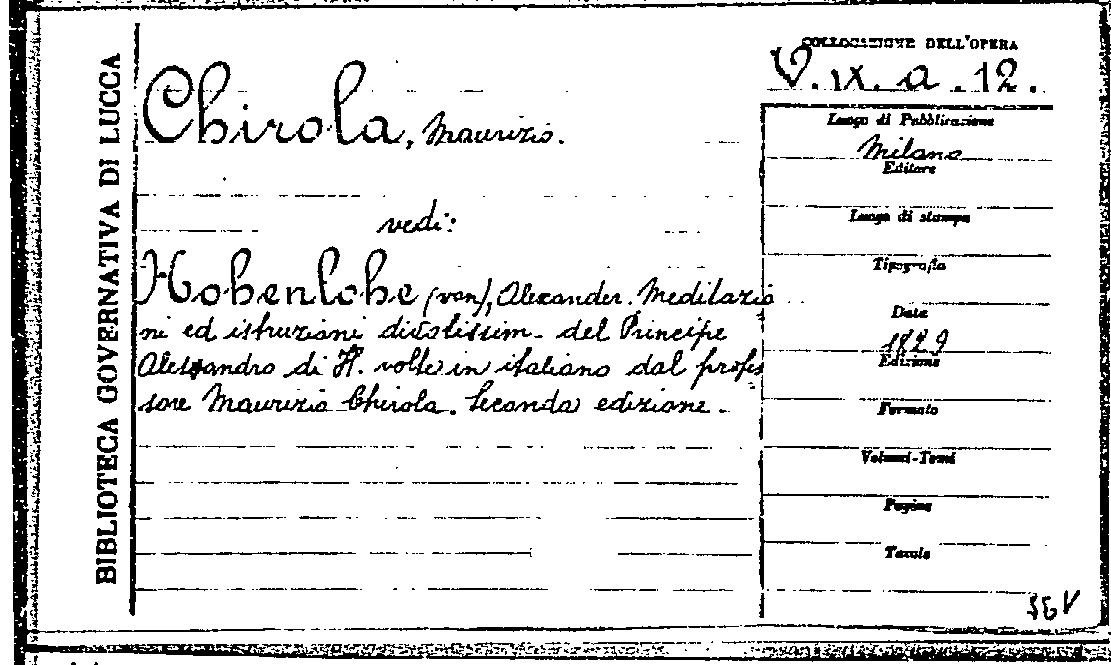 BIBLIOTECA GOVERNATIVA DI LUCCA
COLLOCAZIONE DELL'OPERA
V. IX. a. 12.
Chirola, Maurizio.
vedi:
Hohenlohe (von), Alexander. Meditazio
ni ed istruzioni divotissim. del Principe
Alessandro di H. volte in italiano dal profes
sore Maurizio Chirola. Seconda edizione.
Luogo di Pubblicazione
Milano
Editore
Luogo di stampa
Tipografia
Data
1829
Edizione
Formato
Volumi-Tomi
Pagine
Tavole